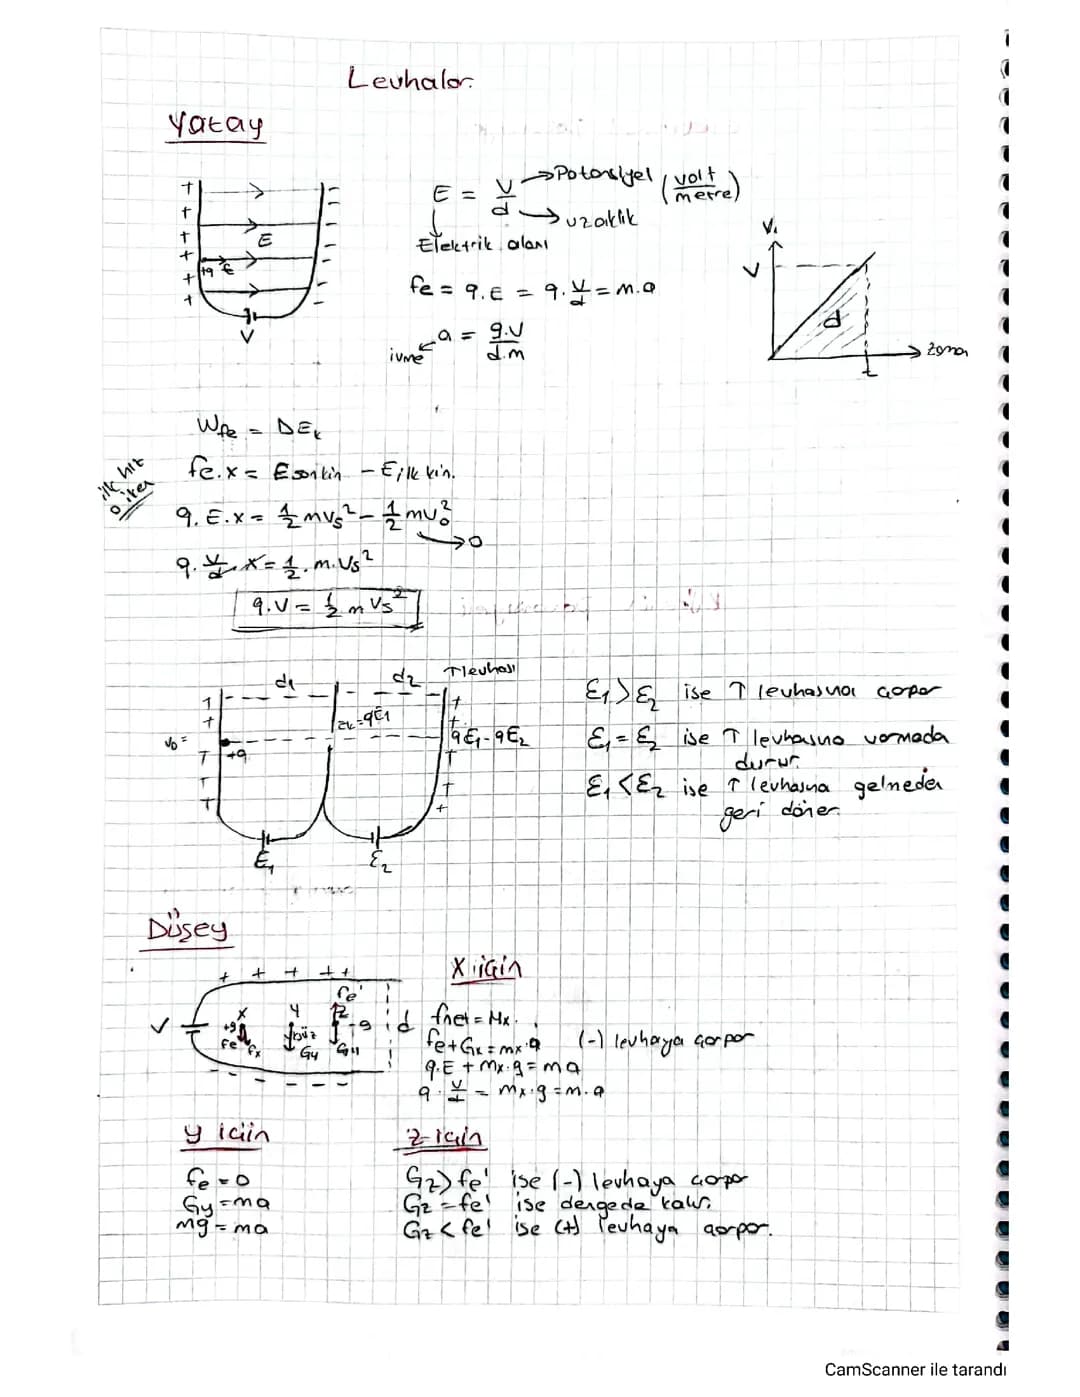 Levhalar
Yatay
E = V/d → Potansiyel (volt/metre)
→ uzaklık
Elektrik alanı
+q
E
V
fe = q.E = q.V/d = m.a
a = q.V/d.m
ivme
V
d
t
zaman
Wfe = ΔEk
fe.x = Esonkin - Eilk kin.
ilk hız 0 iken
q.E.x = 1/2 mvs² - 1/2 mv0²
→ 0
q.V/d.x = 1/2.m.Vs²
q.V = 1/2 m Vs²
d1 d2 T levhası
Ek = qE1
V0 =
+q
qE1 - qE2
E1 E2
E1 > E2 ise T levhasına çarpar
E1 = E2 ise T levhasına varmada
durur.
E1 < E2 ise T levhasına gelmeden
geri döner.
Düşey
+ + + + +
V
x y z
+q -q
fe fe'
Gy
d
X için
fnet = Mx.
fe + Gx = mx.a (-) levhaya çarpar
q.E + mx.g = ma
q.V/d = mx.g = m.a
y için
fe = 0
Gy = ma
mg = ma
z için
Gz > fe' ise (-) levhaya çarpar
Gz = fe' ise dengede kalır.
Gz < fe' ise (+) levhaya çarpar.
CamScanner ile tarandı